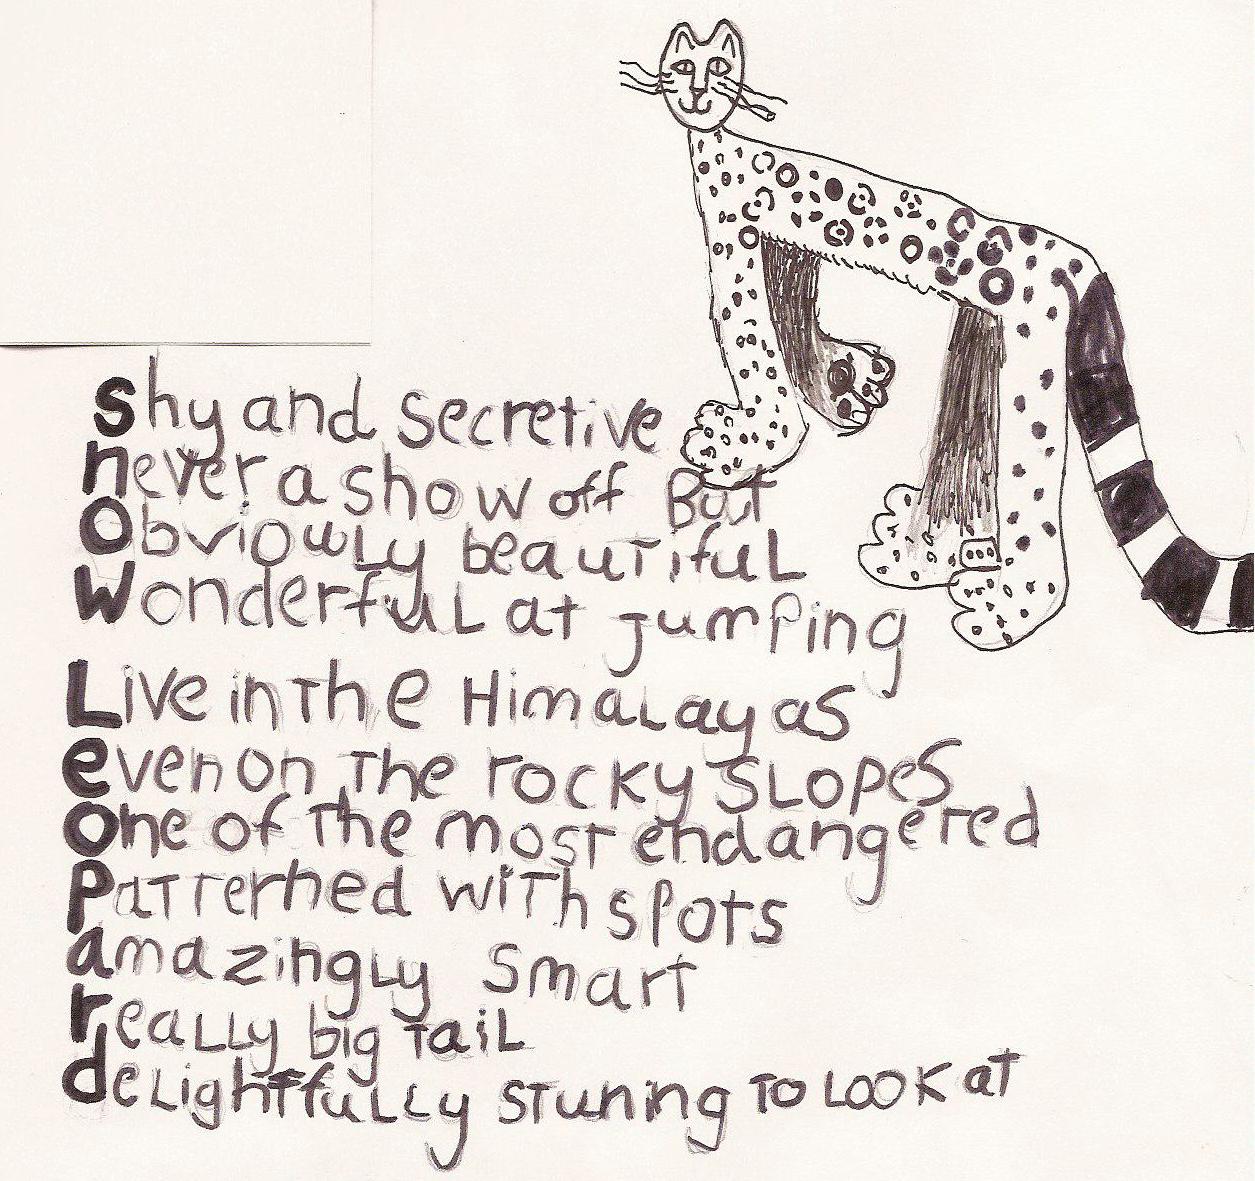 shy and secretive
never a show off But
Obviowly beautiful
Wonderful at jumping
Live in The Himalayas
even on The rocky SLOPeS
one of The most endangered
Patterned with spots
amazingly Smart
really big Tail
delightfully stuning To LOOK at